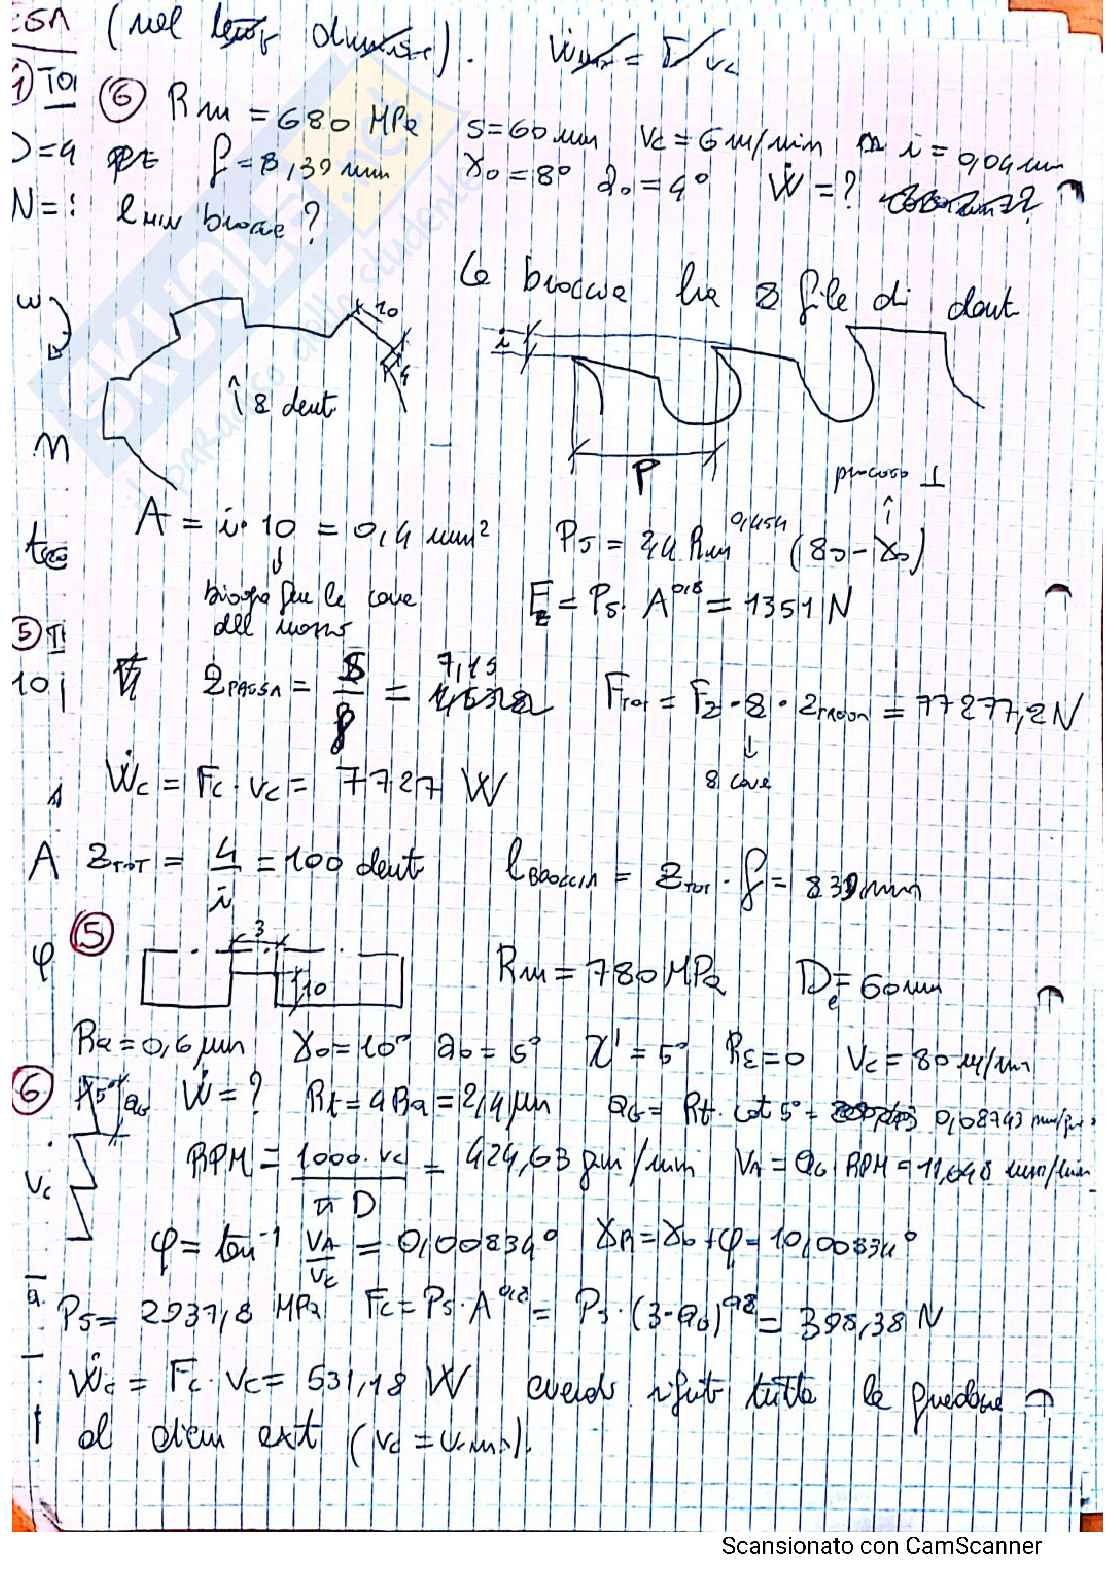 ESA (nel
1) TOI
⑥ Rm = 680 MPa s = 60 mm vc = 6 m/min i = 0,04 mm
D = 4 f = 8,39 mm γ0 = 8° α0 = 4° Ẇ = ?
N = ? lMIN brocce ?
la broccia ha 8 file di denti
ω 10
i 4
î 8 denti
n P
processo ⊥
A = i · 10 = 0,4 mm² Ps = 24 Rm^0,454 (80 - γ0)
bisogna fare le cave
del
Fz = Ps · A^0,8 = 1351 N
⑤ II
10 i zPASSA = s/f = 7,15 FTOT = Fz · 8 · z = 77277,2 N
8 cave
Ẇc = Fc · vc = 7727 W
A zTOT = 4/i = 100 denti lBROCCIA = zTOT · f = 839 mm
φ ⑤ 3
10 Rm = 780 MPa De = 60 mm
Ra = 0,6 μm γ0 = 10° α0 = 5° χ' = 5° Rε = 0 vc = 80 m/min
⑥ 5° a0 Ẇ = ? Rt = 4Ra = 2,4 μm a0 = Rt · cot 5° = 0,02743 mm/giro
vc RPM = 1000 · vc / π D = 424,63 giri/min VA = a0 RPM = 11,648 mm/min
φ = tan⁻¹ VA/vc = 0,00834° γR = γ0 + φ = 10,00834°
Ps = 2937,8 MPa Fc = Ps · A^0,8 = Ps · (3 · a0)^0,8 = 398,38 N
Ẇc = Fc · vc = 531,18 W avendo riferito tutte le grandezze
al diam ext (vc = vcmax).
Scansionato con CamScanner